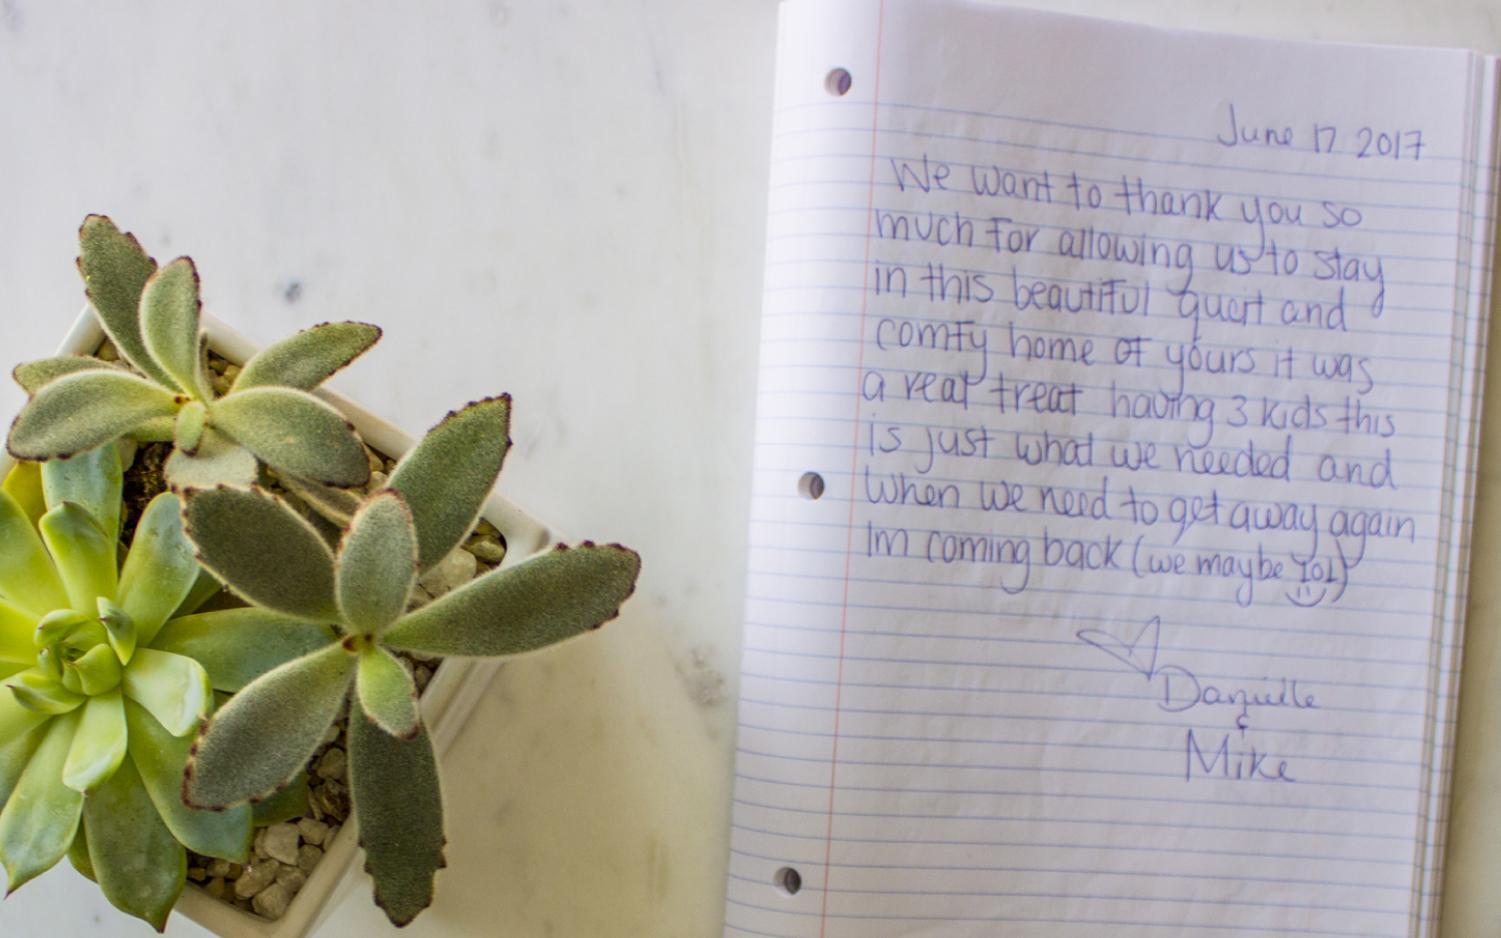 June 17 2017
We want to thank you so
much for allowing us to stay
in this beautiful quert and
comfy home of yours it was
a real treat having 3 kids this
is just what we needed and
when we need to get away again
Im coming back (we maybe lol)
Danielle
&
Mike